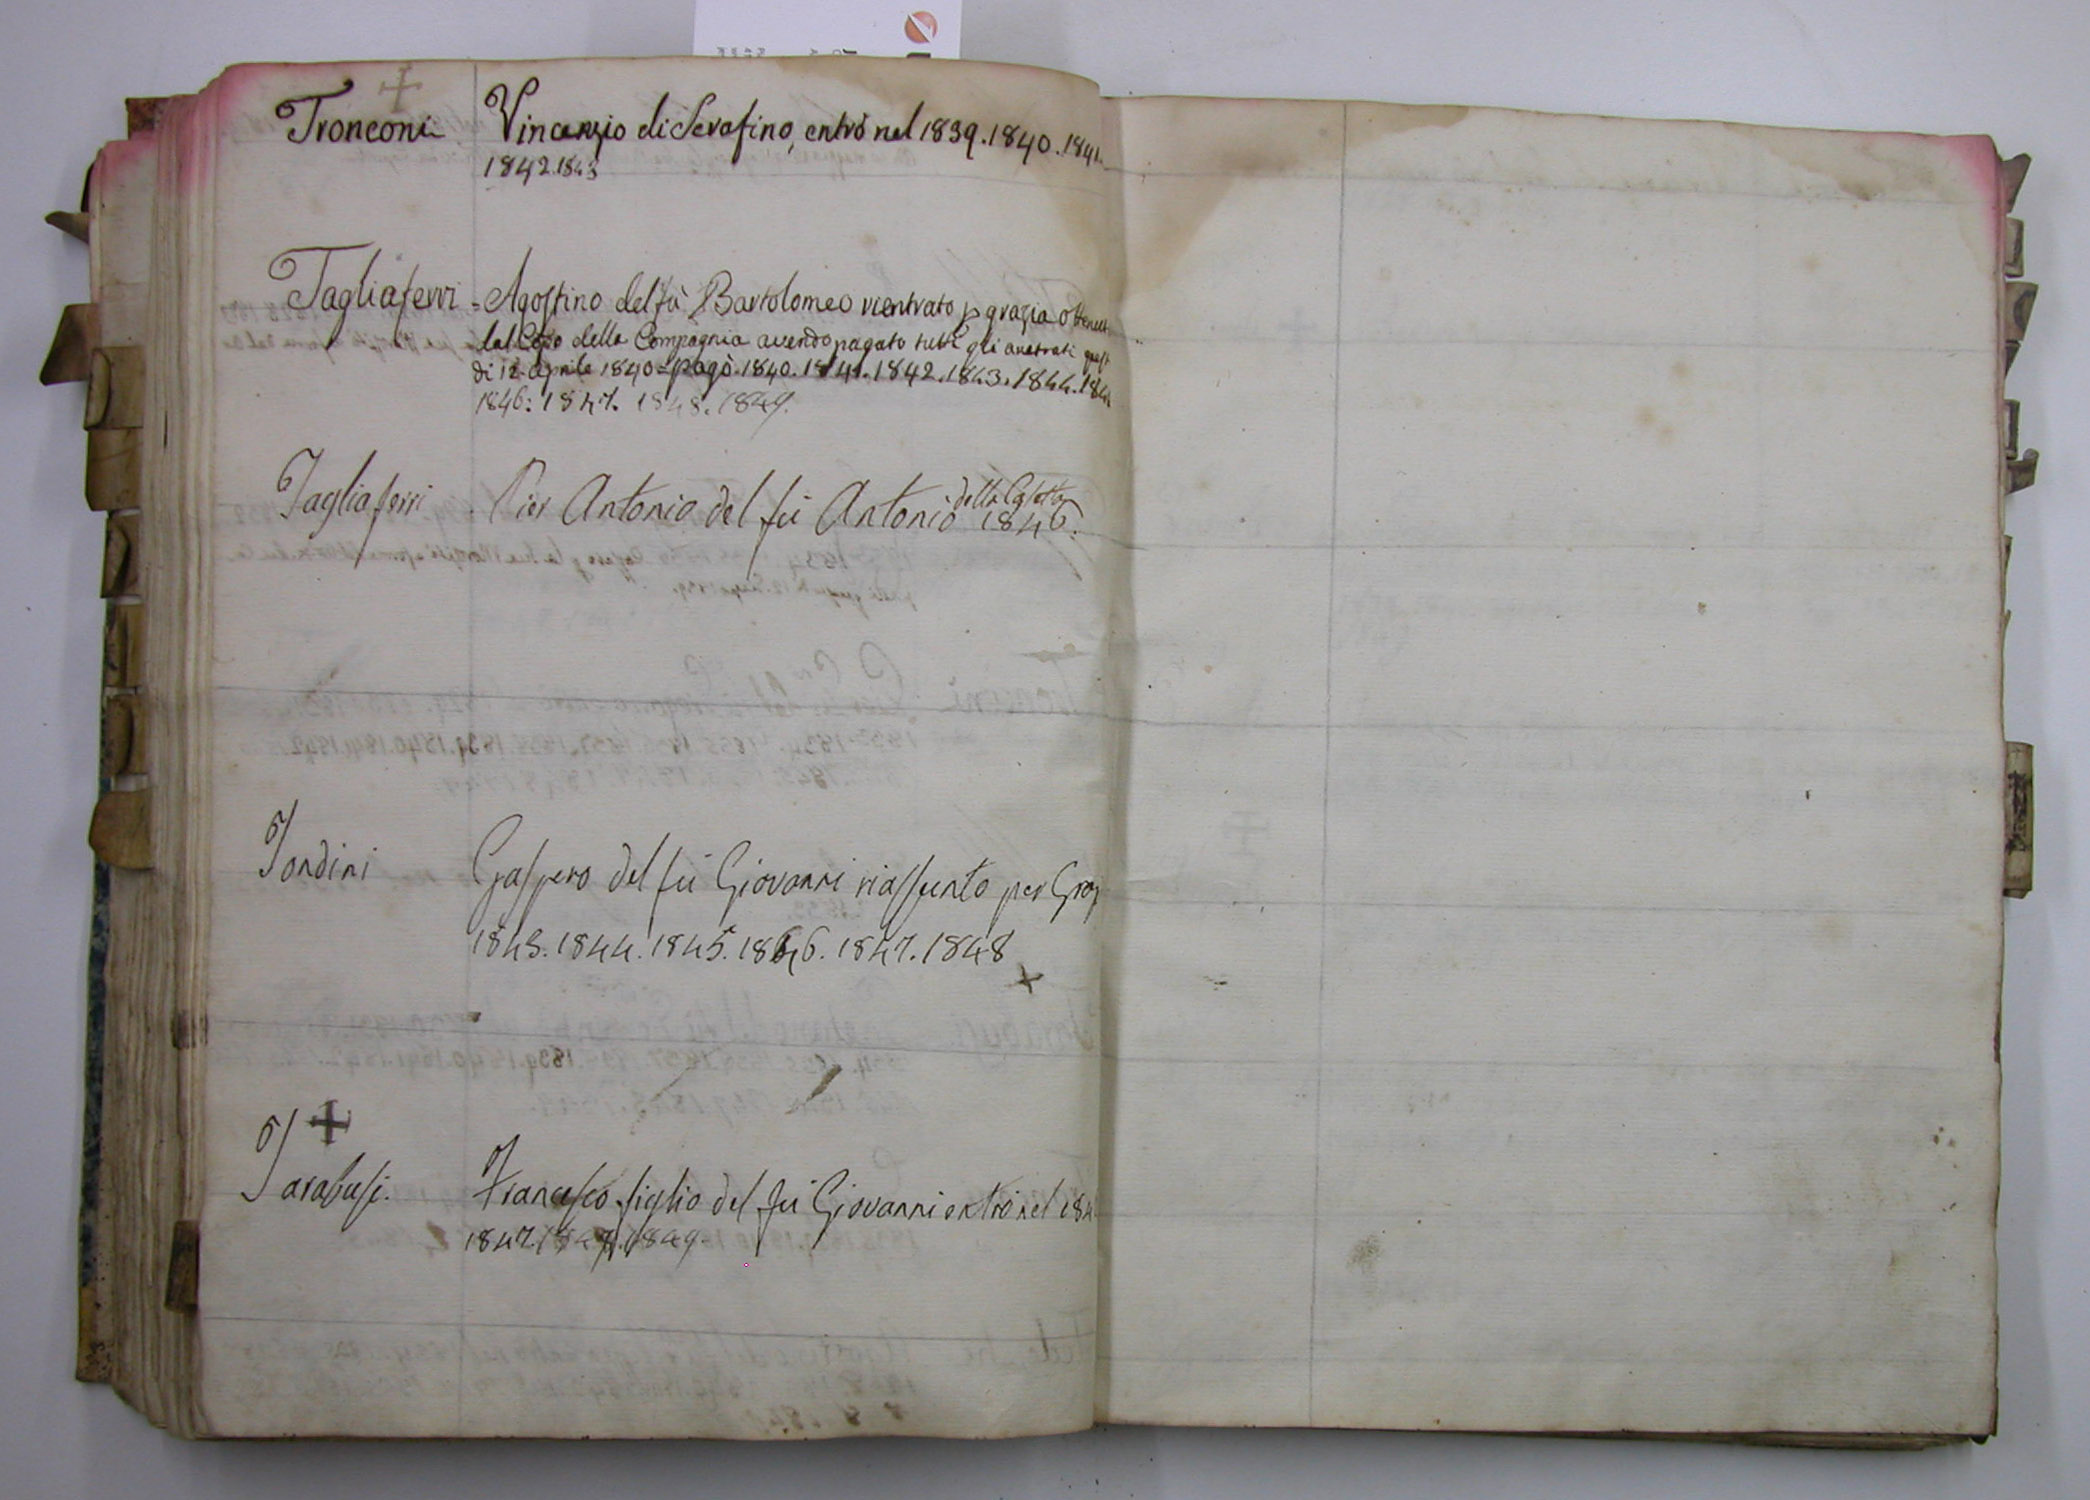 Tronconi Vincenzio di Serafino, entrò nel 1839. 1840. 1841.
1842. 1843
Tagliaferri = Agostino del fù Bartolomeo rientrato p grazia ottenuta
dal Capo della Compagnia avendo pagato tutti gli arretrati
di 12. Aprile 1840 = pagò. 1840. 1841. 1842. 1843. 1844. 184
1846: 1847. 1848. 1849.
Tagliaferri Pier Antonio del fù Antonio 1846.
Tondini Gaspero del fù Giovanni riassunto per Graz
1843. 1844. 1845. 1846. 1847. 1848
Tarabusi. Francesco figlio del fù Giovanni entrò nel 184
1847. 1848. 1849.